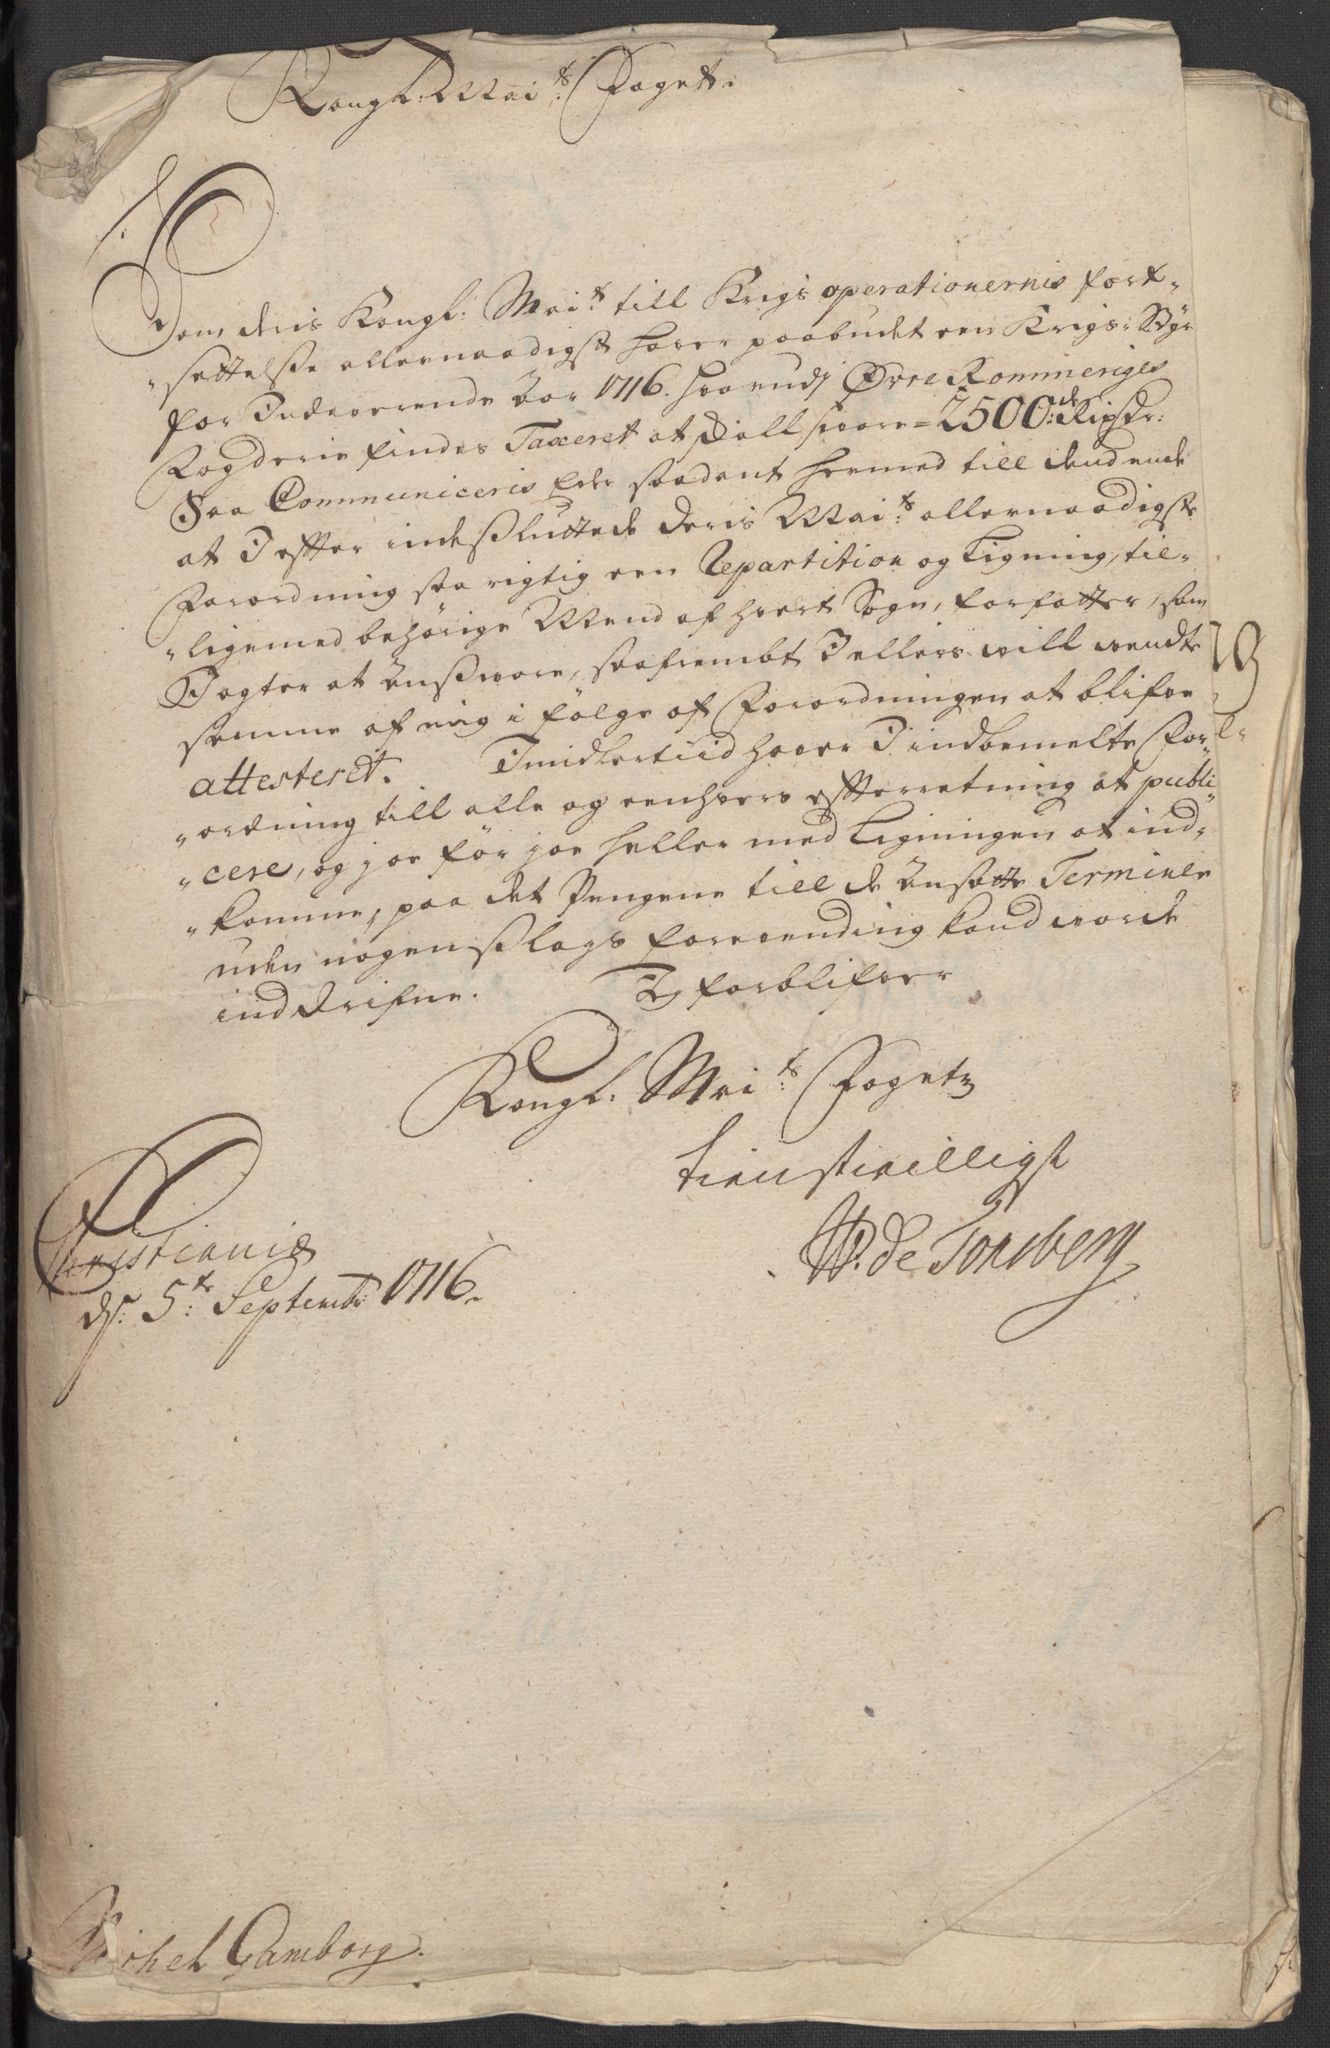 Kongl: Maits: Foget.
Som deris Kongl: Mait: till Krigs operationernis fort-
sættelse allernaadigst hafver paabudet een Krigs-Styr
for Indeverende Aar 1716. hvorudj Øvre Rommeriges
Fogderie findes Taxeret at skall svare = 2500:de Rixdr:
Saa Communiceris Eder saadant hermed till dend ende
at I efter indesluttede Deris Maits: allernaadigste
Forordning saa rigtig een Repartition og Ligning, til-
ligemed behørige Mend af hvert Sogn, forfatter, som
I agter at ansvare, saafrembt I ellers will vendte
samme af mig i følge af Forordningen at blifve
attesteret. Imidlertiid hafver I indbemelte For-
ordning till alle og eenhvers efterretning at publi-
cere, og joe før joe heller med Ligningen at ind-
komme, paa det Pengene till de ansatte Terminer
uden nogenslags forevending kand vorde
inddrifne. Jeg forblifver
Kongl: Maits: Fogets
tienstvilligst
W. de Tonsberg
Christiania
d: 5te Septembr 1716.
Michel Gamborg.